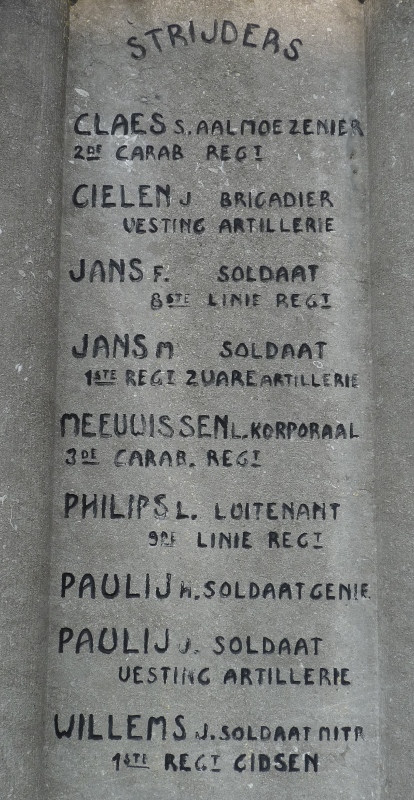 STRIJDERS
CLAES S. AALMOEZENIER
2DE CARAB REGT
CIELEN J BRIGADIER
VESTING ARTILLERIE
JANS F. SOLDAAT
8STE LINIE REGT
JANS M SOLDAAT
1STE REGT ZWARE ARTILLERIE
MEEUWISSEN L. KORPORAAL
3DE CARAB. REGT
PHILIPS L. LUITENANT
9DE LINIE REGT
PAULIJ H. SOLDAAT GENIE
PAULIJ J. SOLDAAT
VESTING ARTILLERIE
WILLEMS J. SOLDAAT MITR
1STE REGT GIDSEN